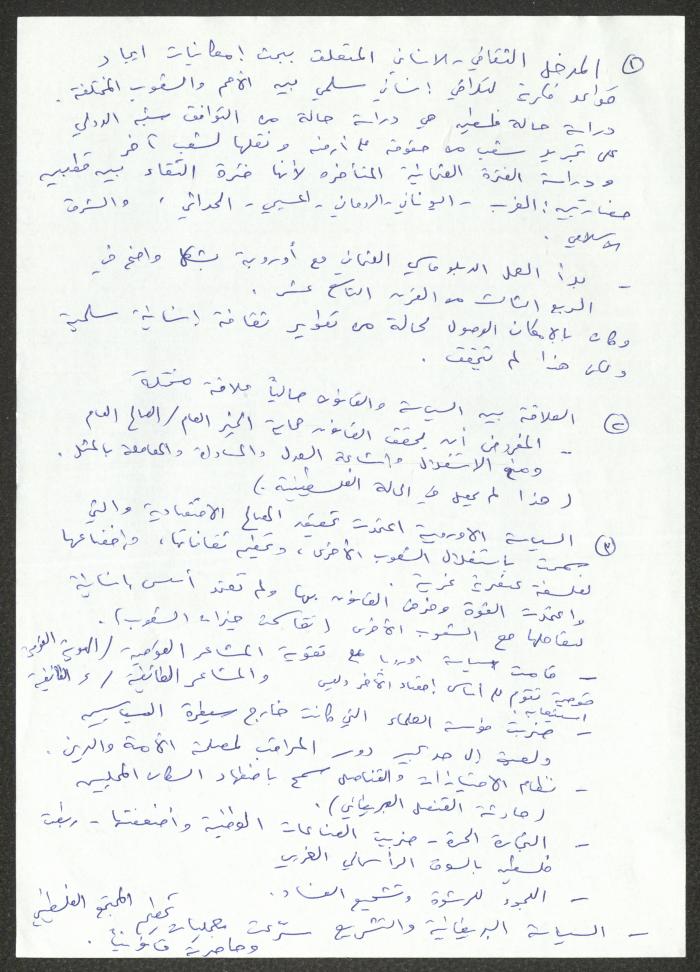 ① المدخل الثقافي - الانساني المتعلق ببحث امكانيات ايجاد
قواعد فكرية لتلاقي إنساني سلمي بين الأمم والشعوب المختلفة.
دراسة حالة فلسطين هي دراسة حالة من التوافق شبه الدولي
على تجريد شعب من حقوقه في أرضه ونقلها لشعب آخر
ودراسة الفترة العثمانية المتأخرة لأنها فترة التقاء بين قطبين
حضاريين: الغرب - اليوناني - الروماني - المسيحي - الحداثي، والشرق
الاسلامي.
- بدأ العمل الدبلوماسي العثماني مع أوروبة بشكل واضح في
الربع الثالث من القرن التاسع عشر.
وكان بالإمكان الوصول لحالة من تطوير ثقافة إنسانية سلمية
ولكن هذا لم يتحقق.
② العلاقة بين السياسة والقانون حالياً علاقة مختلة
- المفروض أن يحقق القانون حماية الخير العام/الصالح العام
ومنع الاستغلال وإشاعة العدل والمساواة والمعاملة بالمثل.
(هذا لم يحصل في الحالة الفلسطينية.)
③ السياسة الاوروبية اعتمدت تحقيق المصالح الاقتصادية والتي
سمحت باستغلال الشعوب الأخرى، وتحطيم ثقافاتها، وإخضاعها
لفلسفة عنصرية غربية.
واعتمدت القوة وفرض القانون بها ولم تعتمد أسس إنسانية
لتعاملها مع الشعوب الأخرى (تقاسمت خيرات الشعوب).
- قامت سياسة اوروبا على تقوية المشاعر القومية/الهوية القومية
قومية تقوم على أساس إخضاع الآخر وليس والمشاعر الطائفية / الطائفية
استيعابه.
- ضربت مؤسسة العلماء التي كانت خارج سيطرة السياسيين
ولعبت إلى حد كبير دور المراقب لمصلحة الأمة والدين.
- نظام الامتيازات والقناصل سمح باضطهاد السكان المحليين
(حادثة القنصل البريطاني).
- التجارة الحرة - ضربت الصناعات الوطنية وأضعفتها - ربطت
فلسطين بالسوق الرأسمالي الغربي
- اللجوء للرشوة وتشجيع الفساد.
- السياسة البريطانية والتشريع سرّعت بعمليات تحطيم المجتمع الفلسطيني
ومحاصرته قانونياً.